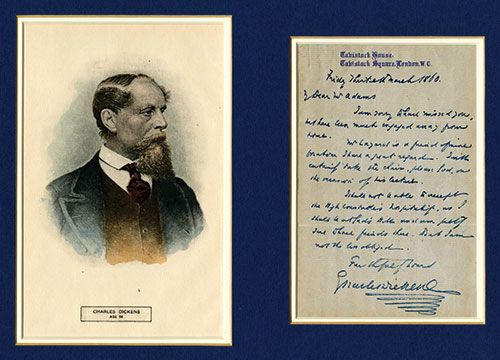 CHARLES DICKENS
Tavistock House,
Tavistock Square, London, W.C.
Friday Thirtieth March 1860.
My Dear Mr Adams
I am sorry to have missed you,
but have been much engaged away from
home.
Mr Layard is a friend of mine
for whom I have a great regard. I will
certainly take the chair, please God, on
the occasion of his lecture.
I shall not be able to accept
the High Constable's hospitality, as I
shall
three friends
not the less obliged.
Faithfully Yours
Charles Dickens